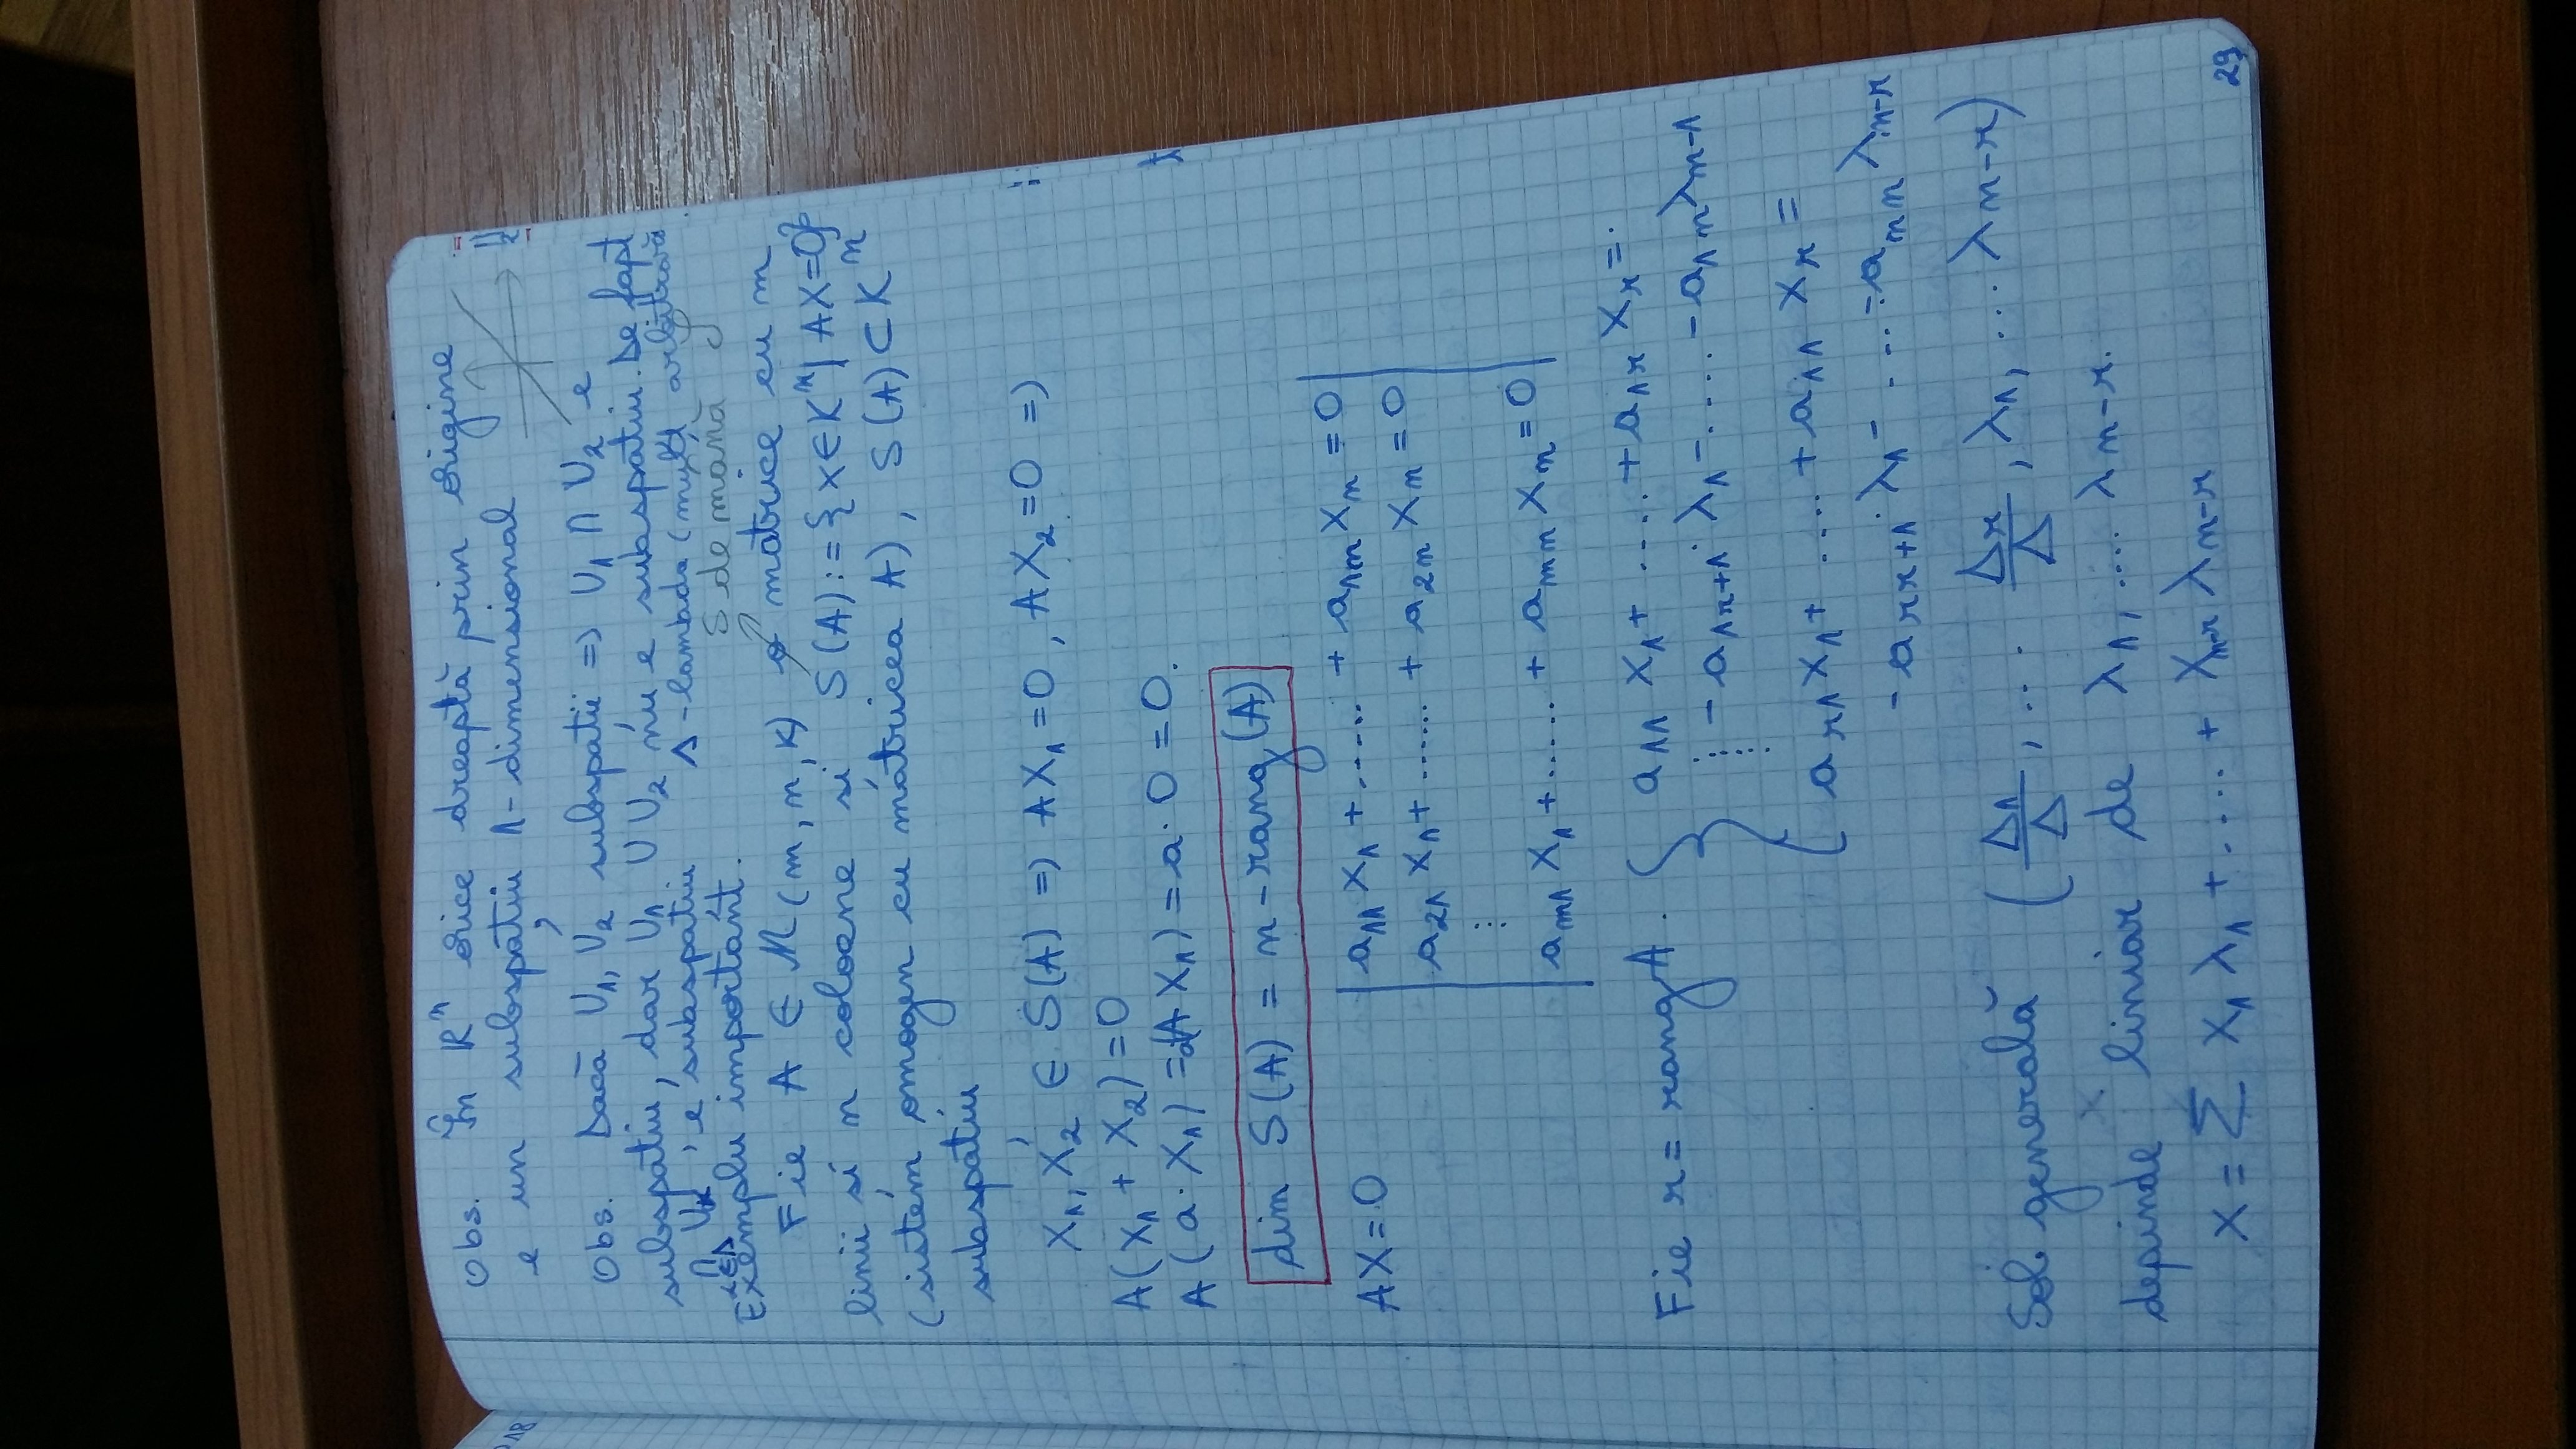 Obs. În R^n orice dreaptă prin origine
e un subspațiu 1-dimensional
Obs. Dacă U₁, U₂ subspații => U₁ ∩ U₂ e
subspațiu, dar U₁ ∪ U₂ nu e subspațiu. De fapt
∩ U_α e subspațiu Λ-lambda (mult arbitrară
α∈Λ
S de mână
Exemplu important.
Fie A ∈ M(m, n, K) o matrice cu m
linii și n coloane și S(A) := {X∈K^n | AX=0}
(sistem omogen cu matricea A), S(A) ⊂ K^n
subspațiu
X₁, X₂ ∈ S(A) => AX₁ = 0, AX₂ = 0 =>
A(X₁ + X₂) = 0
A(a·X₁) = a(AX₁) = a·0 = 0.
dim S(A) = n - rang(A)
AX = 0
a₁₁ X₁ + ...... + a₁ₙ Xₙ = 0
a₂₁ X₁ + ...... + a₂ₙ Xₙ = 0
⋮
aₘ₁ X₁ + ...... + aₘₙ Xₙ = 0
Fie r = rang A. { a₁₁ X₁ + .... + a₁ᵣ Xᵣ =
⋮ - a₁ᵣ₊₁·λ₁ - .... - a₁ₙ λₙ₋₁
aᵣ₁ X₁ + .... + a₁₁ Xᵣ =
- aᵣᵣ₊₁·λ₁ - .... - aₙₙ λₙ₋ᵣ
Sol generală (Δ₁/Δ, ... Δᵣ/Δ, λ₁, ... λₙ₋ᵣ)
depinde liniar de λ₁, .... λₙ₋ᵣ.
X = Σ X₁ λ₁ + .... + Xₙ₋ᵣ λₙ₋ᵣ
29